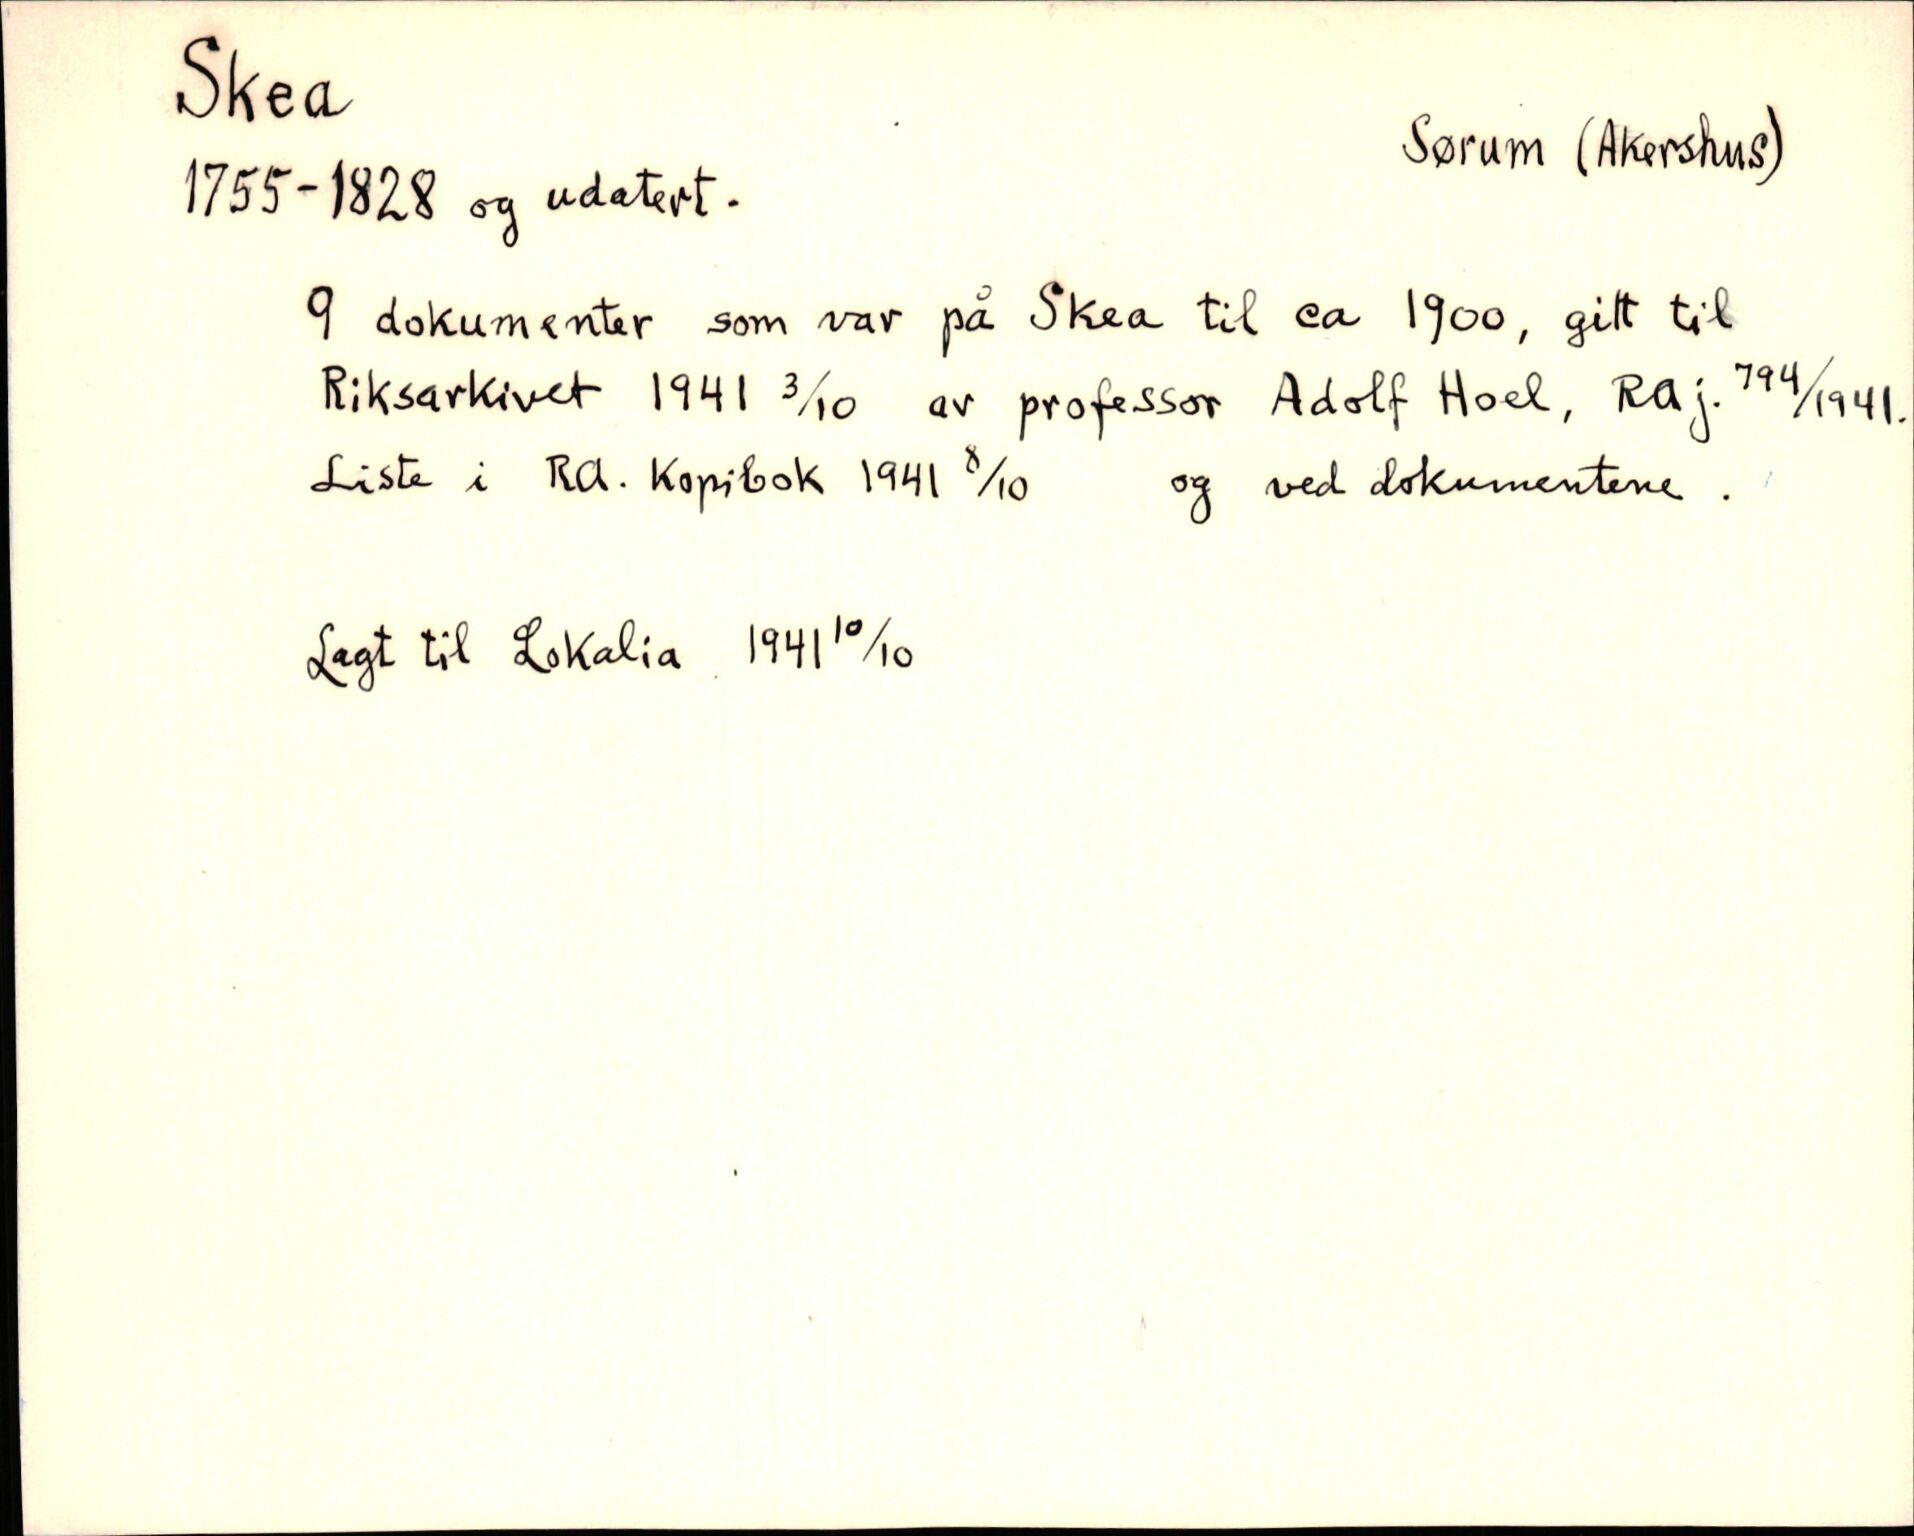 Skea
Sørum (Akershus)
1755-1828 og udatert.
9 dokumenter som var på Skea til ca 1900, gitt til
Riksarkivet 1941 3/10 av professor Adolf Hoel, RA j. 794/1941.
Liste i RA. Kopibok 1941 8/10 og ved dokumentene.
Lagt til Lokalia 1941 10/10